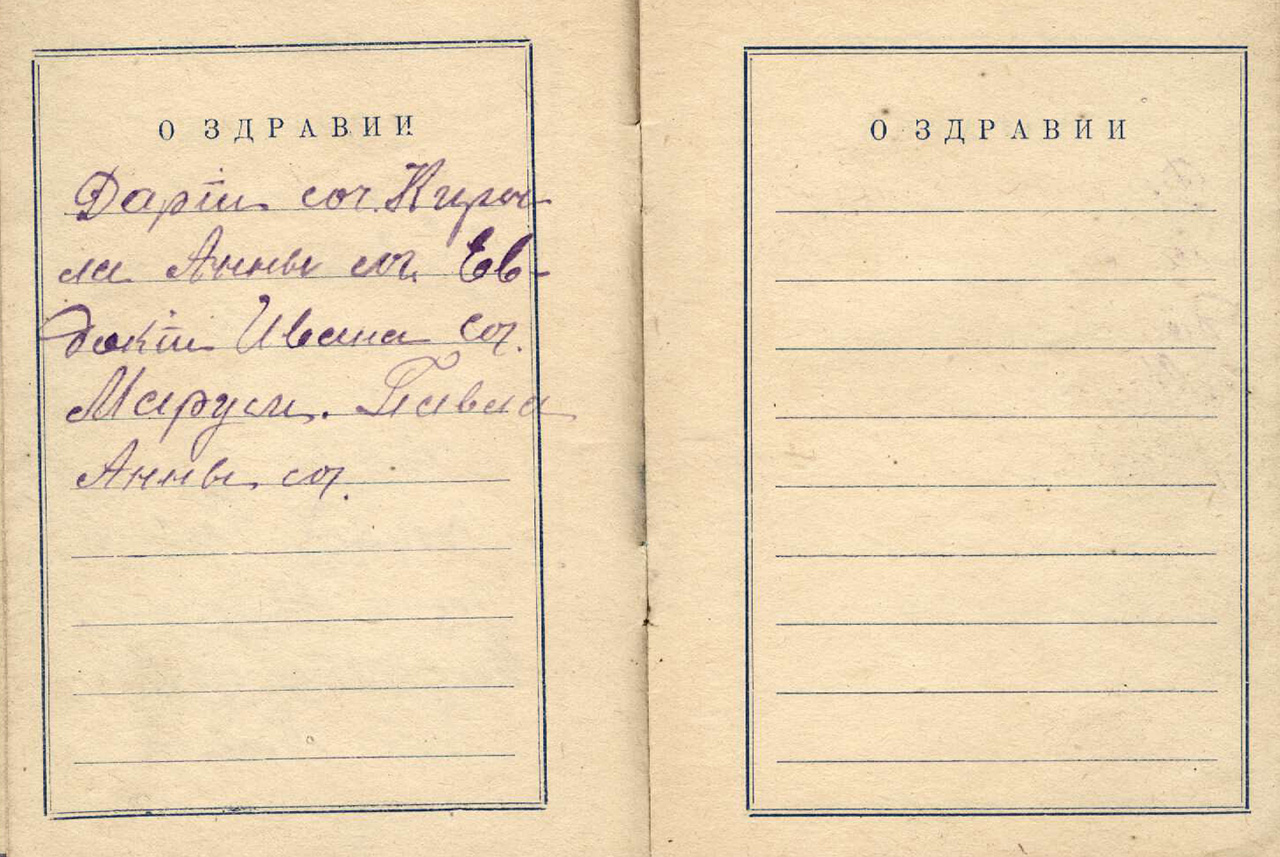 О ЗДРАВИИ
Дарiи соч. Кири
ла Анны соч. Ев-
докiи Ивана соч.
Маруси. Павла
Анны соч.
О ЗДРАВИИ